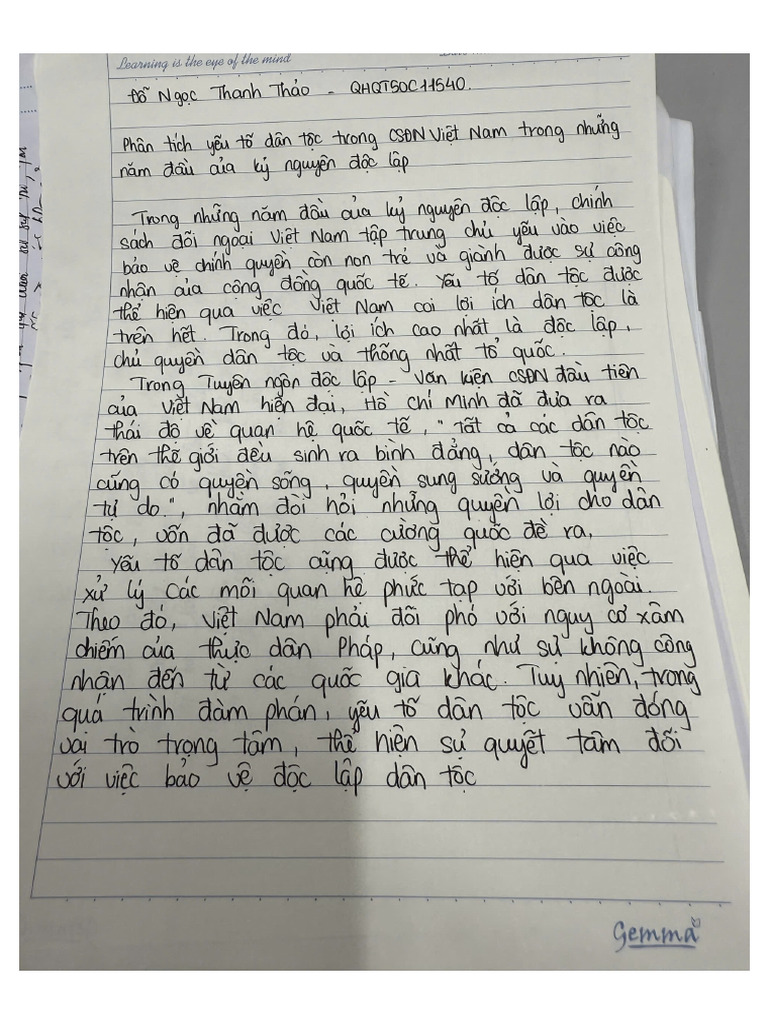 Learning is the eye of the mind
Đỗ Ngọc Thanh Thảo - QHQT50C11540.
Phân tích yếu tố dân tộc trong CSĐN Việt Nam trong những
năm đầu của kỷ nguyên độc lập
Trong những năm đầu của kỷ nguyên độc lập, chính
sách đối ngoại Việt Nam tập trung chủ yếu vào việc
bảo vệ chính quyền còn non trẻ và giành được sự công
nhận của cộng đồng quốc tế. Yếu tố dân tộc được
thể hiện qua việc Việt Nam coi lợi ích dân tộc là
trên hết. Trong đó, lợi ích cao nhất là độc lập,
chủ quyền dân tộc và thống nhất tổ quốc.
Trong Tuyên ngôn độc lập - Văn kiện CSĐN đầu tiên
của Việt Nam hiện đại, Hồ Chí Minh đã đưa ra
thái độ về quan hệ quốc tế, "Tất cả các dân tộc
trên thế giới đều sinh ra bình đẳng, dân tộc nào
cũng có quyền sống, quyền sung sướng và quyền
tự do.", nhằm đòi hỏi những quyền lợi cho dân
tộc, vốn đã được các cường quốc đề ra.
Yếu tố dân tộc cũng được thể hiện qua việc
xử lý các mối quan hệ phức tạp với bên ngoài.
Theo đó, Việt Nam phải đối phó với nguy cơ xâm
chiếm của thực dân Pháp, cũng như sự không công
nhận đến từ các quốc gia khác. Tuy nhiên, trong
quá trình đàm phán, yếu tố dân tộc vẫn đóng
vai trò trọng tâm, thể hiện sự quyết tâm đối
với việc bảo vệ độc lập dân tộc
Gemma